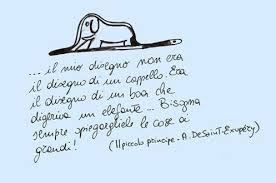 ... il mio disegno non era
il disegno di un cappello. Era
il disegno di un boa che
digeriva un elefante... Bisogna
sempre spiegargliele le cose ai
grandi!
(Il piccolo principe - A. De Saint-Exupéry)